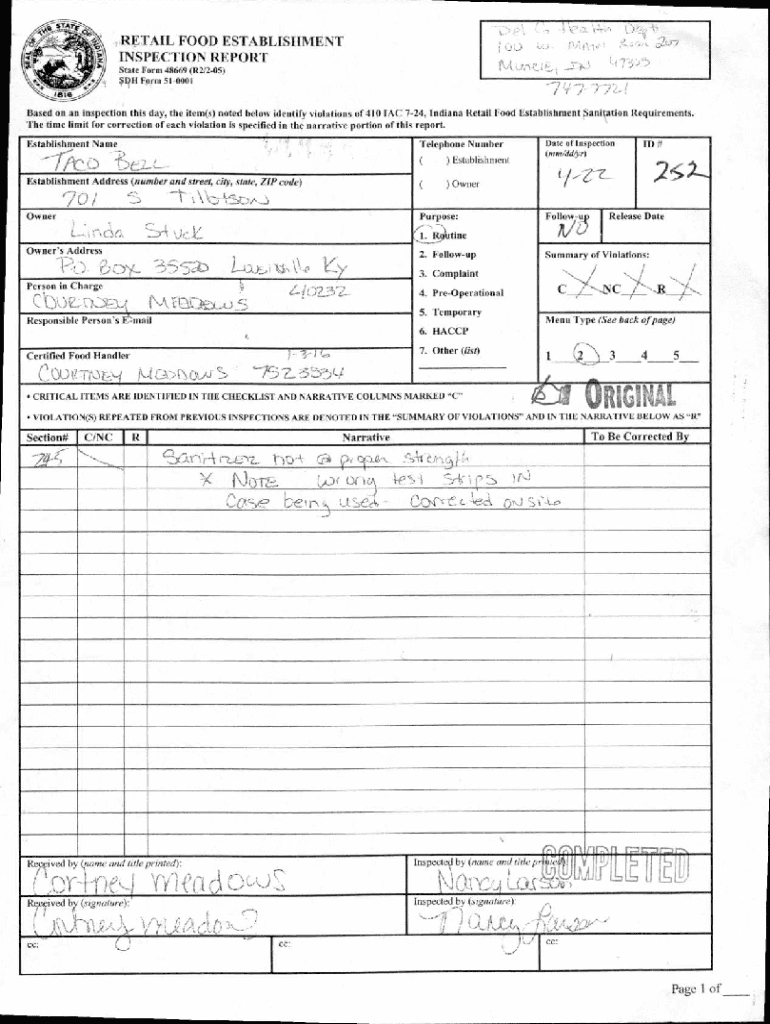 SEAL OF THE STATE OF INDIANA
1816
RETAIL FOOD ESTABLISHMENT
INSPECTION REPORT
State Form 48669 (R2/2-05)
SDH Form 51-0001
Del Co Health Dept
100 W. Main Room 207
Muncie, IN 47305
747-7721
Based on an inspection this day, the item(s) noted below identify violations of 410 IAC 7-24, Indiana Retail Food Establishment Sanitation Requirements.
The time limit for correction of each violation is specified in the narrative portion of this report.
Establishment Name
TACO BELL
Telephone Number
( ) Establishment
( ) Owner
Date of Inspection
(mm/dd/yr)
4-22
ID #
252
Establishment Address (number and street, city, state, ZIP code)
701 S Tillotson
Owner
Linda Stuck
Purpose:
1. Routine
2. Follow-up
3. Complaint
4. Pre-Operational
5. Temporary
6. HACCP
7. Other (list)
Follow-up
NO
Release Date
Owner's Address
P.O. BOX 35520 Louisville Ky
40232
Summary of Violations:
C NC R
Person in Charge
COURTNEY MEADOWS
Responsible Person's E-mail
Menu Type (See back of page)
1 2 3 4 5
Certified Food Handler
1-3-16
COURTNEY MEADOWS 7523534
• CRITICAL ITEMS ARE IDENTIFIED IN THE CHECKLIST AND NARRATIVE COLUMNS MARKED "C"
ORIGINAL
• VIOLATION(S) REPEATED FROM PREVIOUS INSPECTIONS ARE DENOTED IN THE "SUMMARY OF VIOLATIONS" AND IN THE NARRATIVE BELOW AS "R"
Section# C/NC R Narrative To Be Corrected By
Sanitizer not @ proper strength
* NOTE wrong test strips IN
Case being used - Corrected onsite
COMPLETED
Received by (name and title printed):
Cortney meadows
Inspected by (name and title printed):
Nancy Larson
Received by (signature):
Cortney meadows
Inspected by (signature):
Nancy Larson
cc: cc: cc:
Page 1 of